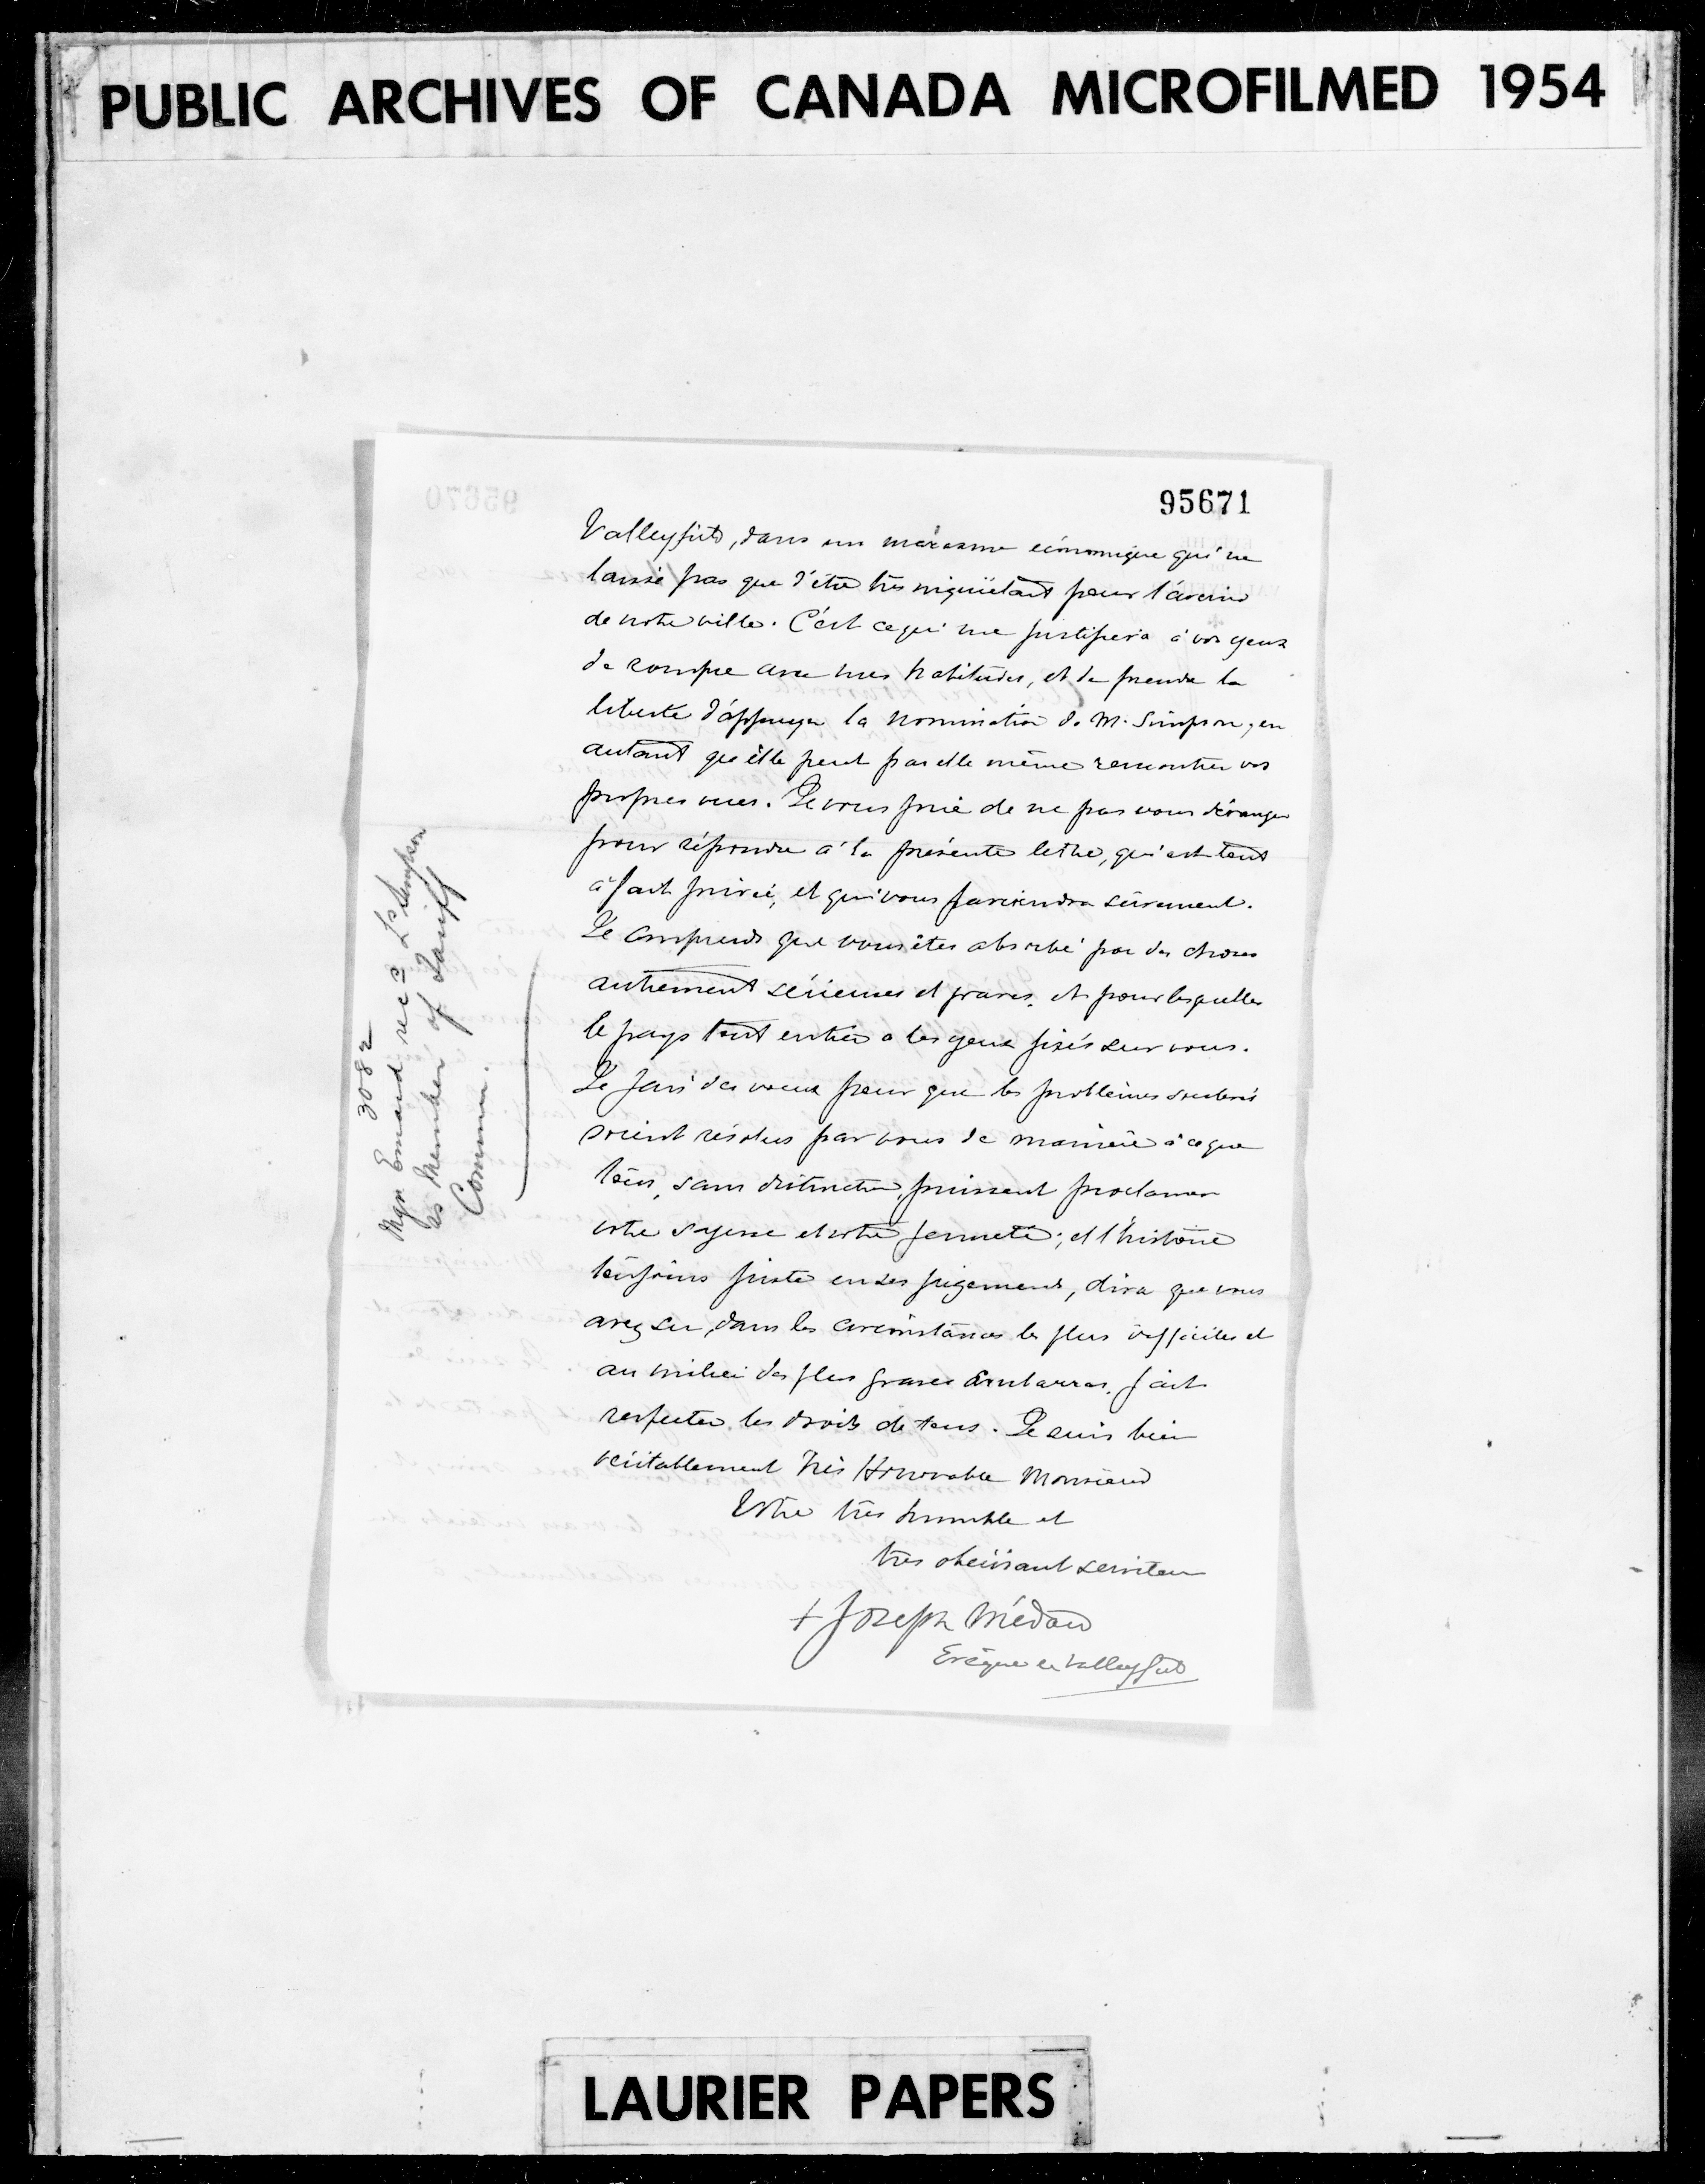 PUBLIC ARCHIVES OF CANADA MICROFILMED 1954
95670
95671
Valleyfield, dans un marasme économique qui ne
laisse pas que d'être très inquiétant pour l'avenir
de notre ville. C'est ce qui me justifiera à vos yeux
de rompre avec mes habitudes, et de prendre la
liberté d'appuyer la nomination de M. Simpson, en
autant qu'elle peut par elle même rencontrer vos
propres vues. Je vous prie de ne pas vous déranger
pour répondre à la présente lettre, qui est tout
à fait privée, et qui vous parviendra sûrement.
Je comprends que vous êtes absorbé par des choses
autrement sérieuses et graves, et pour lesquelles
le pays tout entier a les yeux fixés sur vous.
Je fais des vœux pour que les problèmes soulevés
soient résolus par vous de manière à ce que
tous, sans distinction, puissent proclamer
votre sagesse et votre fermeté; et l'histoire
toujours juste en ses jugements, dira que vous
avez su, dans les circonstances les plus difficiles et
au milieu des plus graves embarras, fait
respecter les droits de tous. Je suis bien
véritablement Très Honorable Monsieur
Votre très humble et
très obéissant serviteur
+ Joseph Médard
Evêque de Valleyfield
3082
Mgr Emard re Simpson
as Member of Tariff
Comm.
LAURIER PAPERS